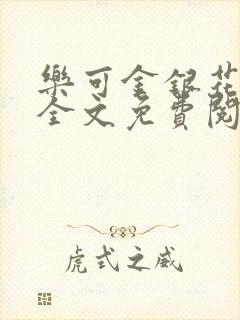 樂可金銀花
全文免費閱
虎式之威